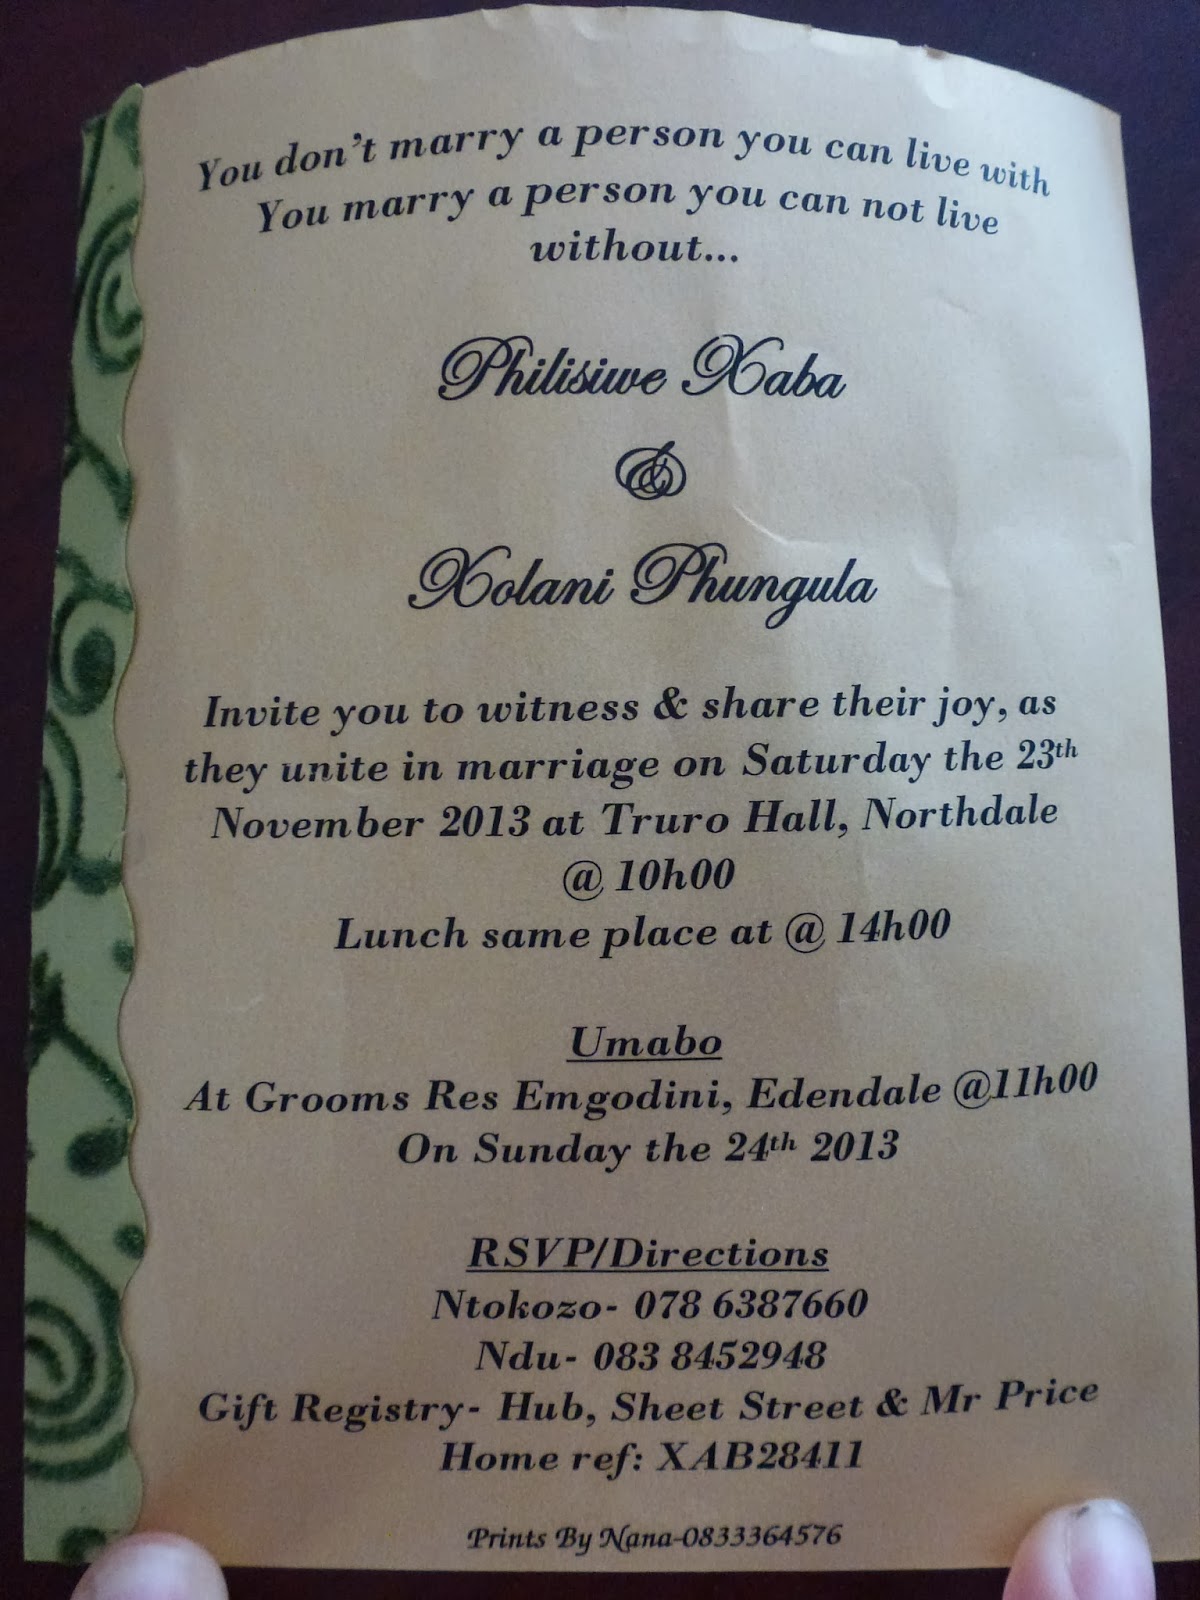 You don't marry a person you can live with
You marry a person you can not live
without...
Philisiwe Xaba
&
Xolani Phungula
Invite you to witness & share their joy, as
they unite in marriage on Saturday the 23th
November 2013 at Truro Hall, Northdale
@ 10h00
Lunch same place at @ 14h00
Umabo
At Grooms Res Emgodini, Edendale @11h00
On Sunday the 24th 2013
RSVP/Directions
Ntokozo- 078 6387660
Ndu- 083 8452948
Gift Registry- Hub, Sheet Street & Mr Price
Home ref: XAB28411
Prints By Nana-0833364576